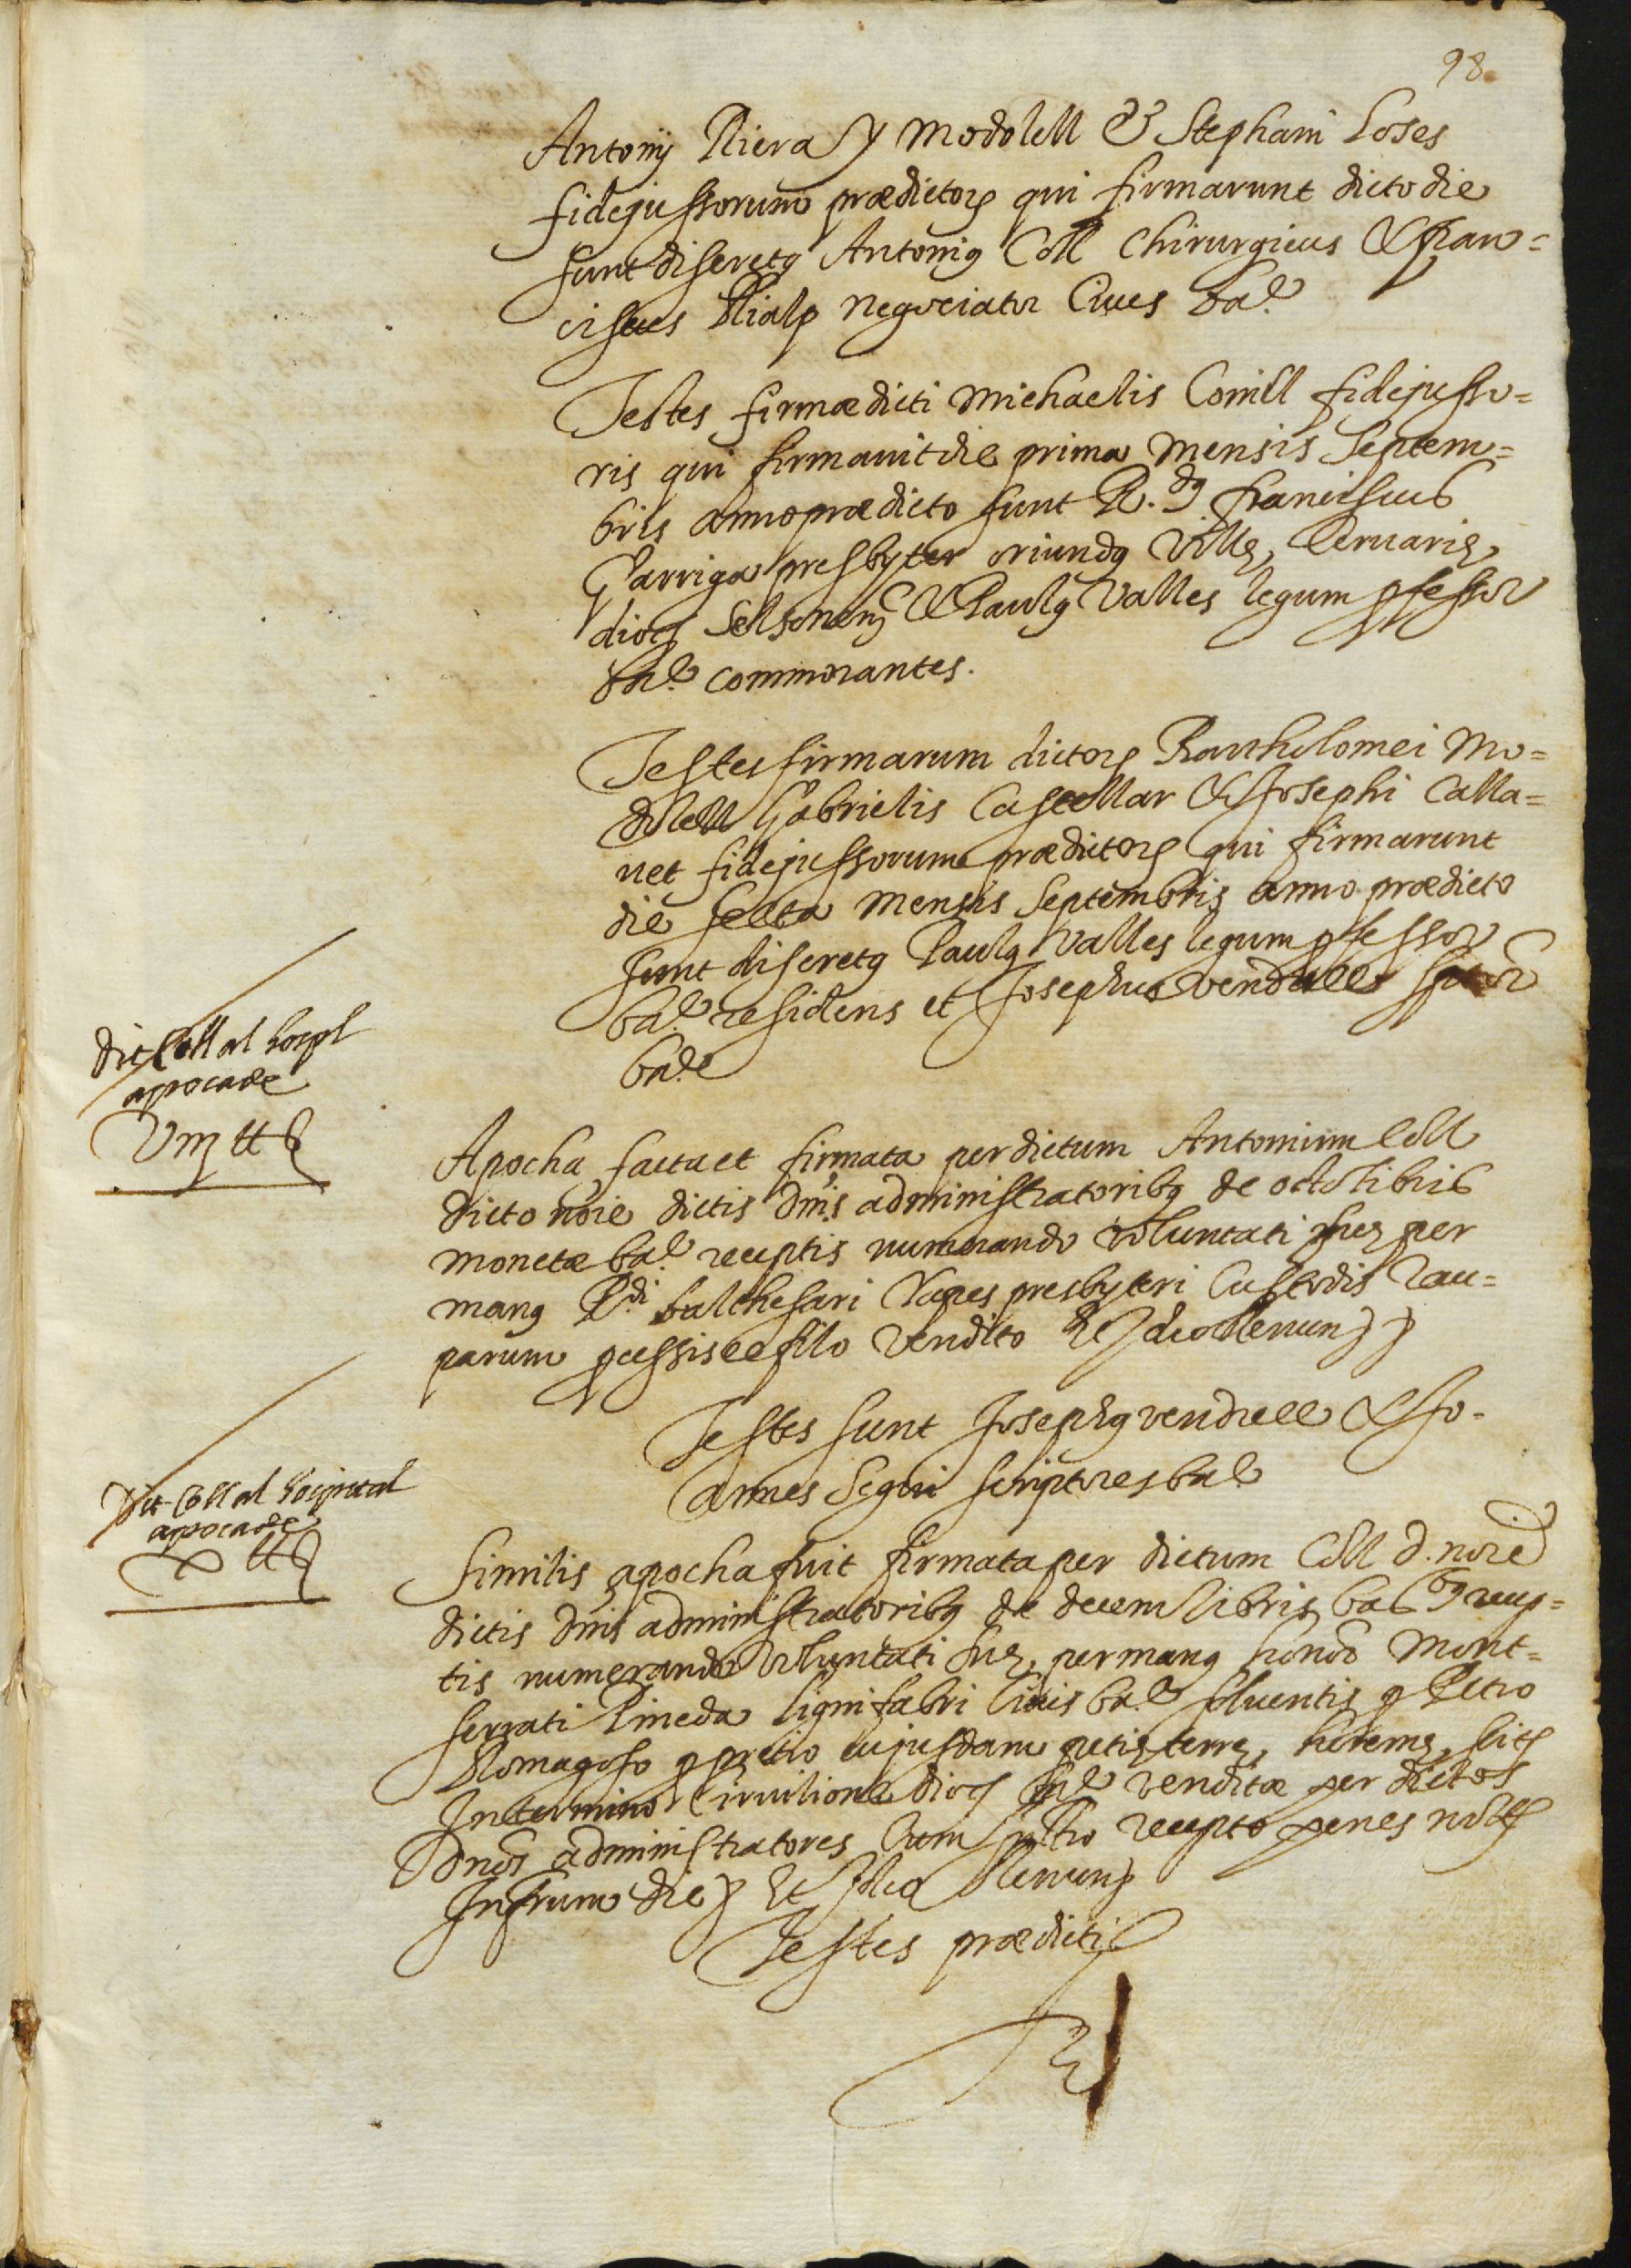 98
Antonij Riera y Modolell & Stephani Loses
fidejussorum prædictorꝫ qui firmarunt dicto die
sunt discretꝰ Antoniꝰ Coll Chirurgicus & Fran=
ciscus Rialp negociator Cives Baᵉ
Testes firmæ dicti Michaelis Conill fidejusso=
ris qui firmavit die prima mensis Septem=
bris anno prædicto sunt R.dꝰ Franciscus
Garriga presbyter oriundꝰ Villę Cervarię
dioc Selsonenꝫ & Paulꝰ Valles legum pfessor
Baᵉ commorantes.
Testes firmarum dictorꝫ Bartholomei Mo=
dolell Gabrielis Castellar & Josephi Calla=
uet fidejussorum prædictorꝫ qui firmarunt
die sexta mensis Septembris anno prædicto
sunt discretꝰ Paulꝰ Valles legum pfessor
Baᵉ residens et Josephus Vendrell
Baᵉ
dit Coll al hospl
apoca de
Vııȷ ₶
Apocha facta et firmata per dictum Antonium Coll
dicto noie dictis dnis administratoribꝰ de octo libris
monetæ Baᵉ receptis numerando voluntati suę per
manꝰ Rdi Balthesari Xapes presbyteri Custodis rau=
parum pcessis e filo vendito Et ideo Renunꝫ
Testes sunt Josephꝰ Vendrell & Jo-
annes Seguí scriptores Baᵉ
dit Coll al hospital
apoca de
X ₶
Similis apocha fuit firmata per dictum Coll d. noie
dictis dnis administratoribꝰ de decem libris Ba bꝰ recep=
tis numerando voluntati suę per manꝰ honor Mont=
serrati Pineda lignifabri Civis Baᵉ solventis p Petro
Romagosa p pretio cujusdam petię terrę heremę sitę
In termino Cirvilione dioc Baᵉ venditæ per dictos
Dnos administratores Cum recepto penes notm
Infrum die Et ideo Renunꝫ
Testes prædicti